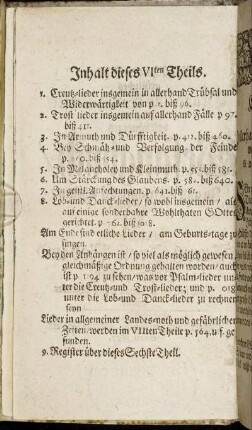 Inhalt dieses VIten Theils.
1. Creutz-lieder insgemein in allerhand Trübsal und
Widerwärtigkeit von p 1. biß 96.
2. Trost lieder insgemein auf allerhand Fälle p 97.
biß 411.
3. In Armuth und Dürfftigkeit. p. 412. biß 460.
4. Bey Schmäh- und Verfolgung der Feinde
biß 554.
5. In Melancholey und Kleinmuth. p. 555. biß 581.
6. Um Stärckung des Glaubens. p. 582. biß 640.
7. In geistl. Anfechtungen. p. 641. biß
8. Lob- und Danck-lieder / so wohl insgemein / als
um einige sonderbahre Wohlthaten Gottes
gerichtet. p biß
Am Ende sind etliche Lieder / am Geburts-tage zu
singen.
Bey den Anhängen ist / so viel als möglich gewesen /
gleichmäßige Ordnung gehalten worden / auch
ist p zu sehen / was vor Psalm-lieder un-
ter die Creutz- und Trost-lieder; und p.
unter die Lob- und Danck-lieder zu rechnen
seyn
Lieder in allgemeiner Landes-noth und gefährlichen
Zeiten / werden im VIIten Theile p. 564. u. f. ge-
funden.
9. Register über dieses Sechste Theil.